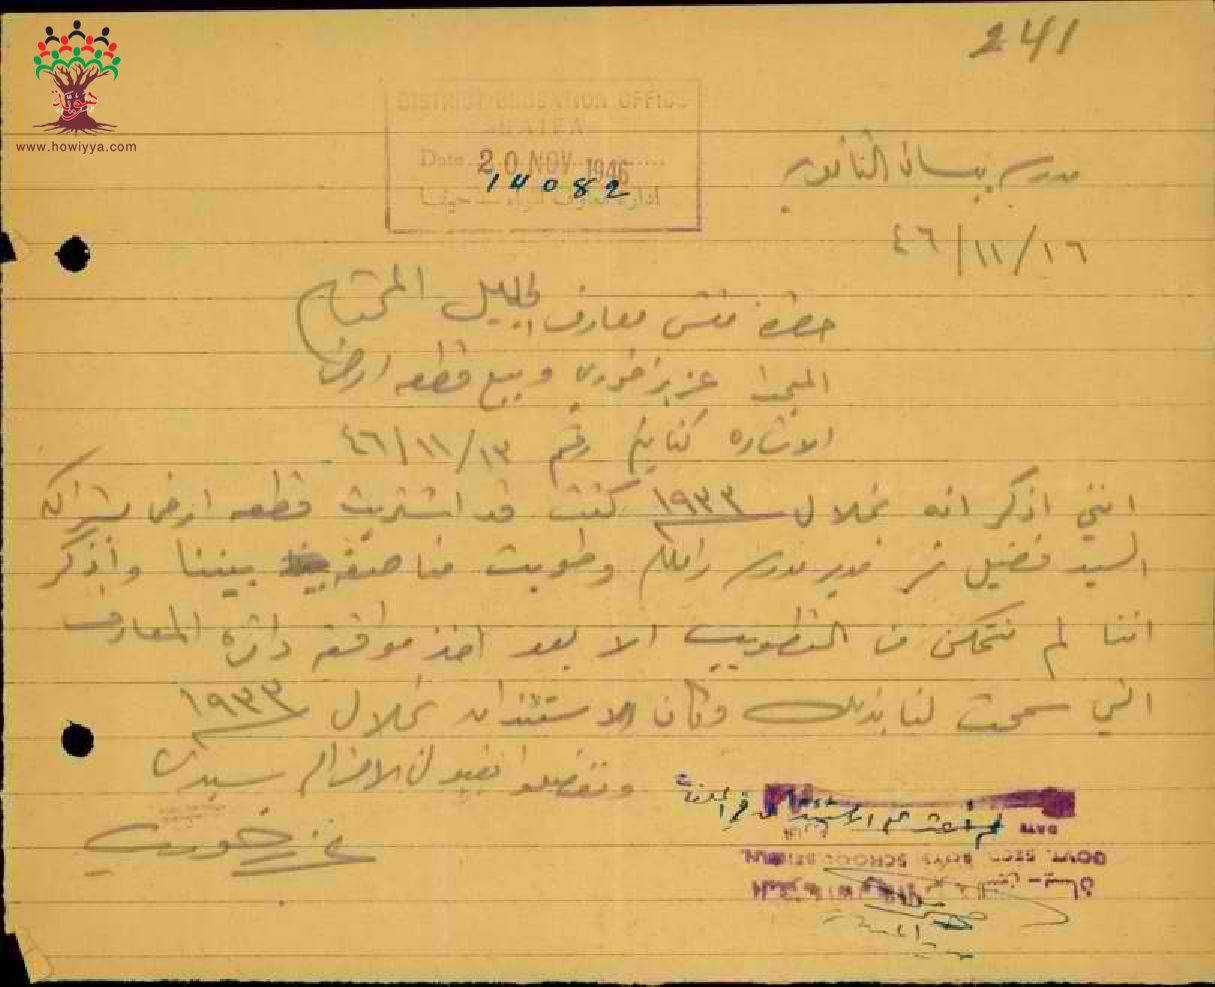 241
هوية
www.howiyya.com
DISTRICT EDUCATION OFFICE
HAIFA
Date 20 NOV 1946
14082
ادارة معارف لواء حيفا
مدرسة بيسان الثانوية
٤٦/١١/١٦
حضرة مفتش معارف الجليل المحترم
المبحث عزيز خوري وبيع قطعه ارض
الاشاره كتابكم رقم ٤٦/١١/١٣
انني اذكر انه بخلال ١٩٣٣ كنت قد اشتريت قطعه ارض بشراكة
السيد فضيل نمر مدير مدرسة وطوبت مناصفة بيننا واذكر
اننا لم نتمكن من التطويب الا بعد اخذ موافقة دائرة المعارف
التي سمحت لنا بذلك وكان الاستئذان بخلال ١٩٣٣
وتفضلوا بقبول الاحترام سيدي
عزيز خوري
DATE
GOVT. SECD. BOYS SCHOOL BEISAN.